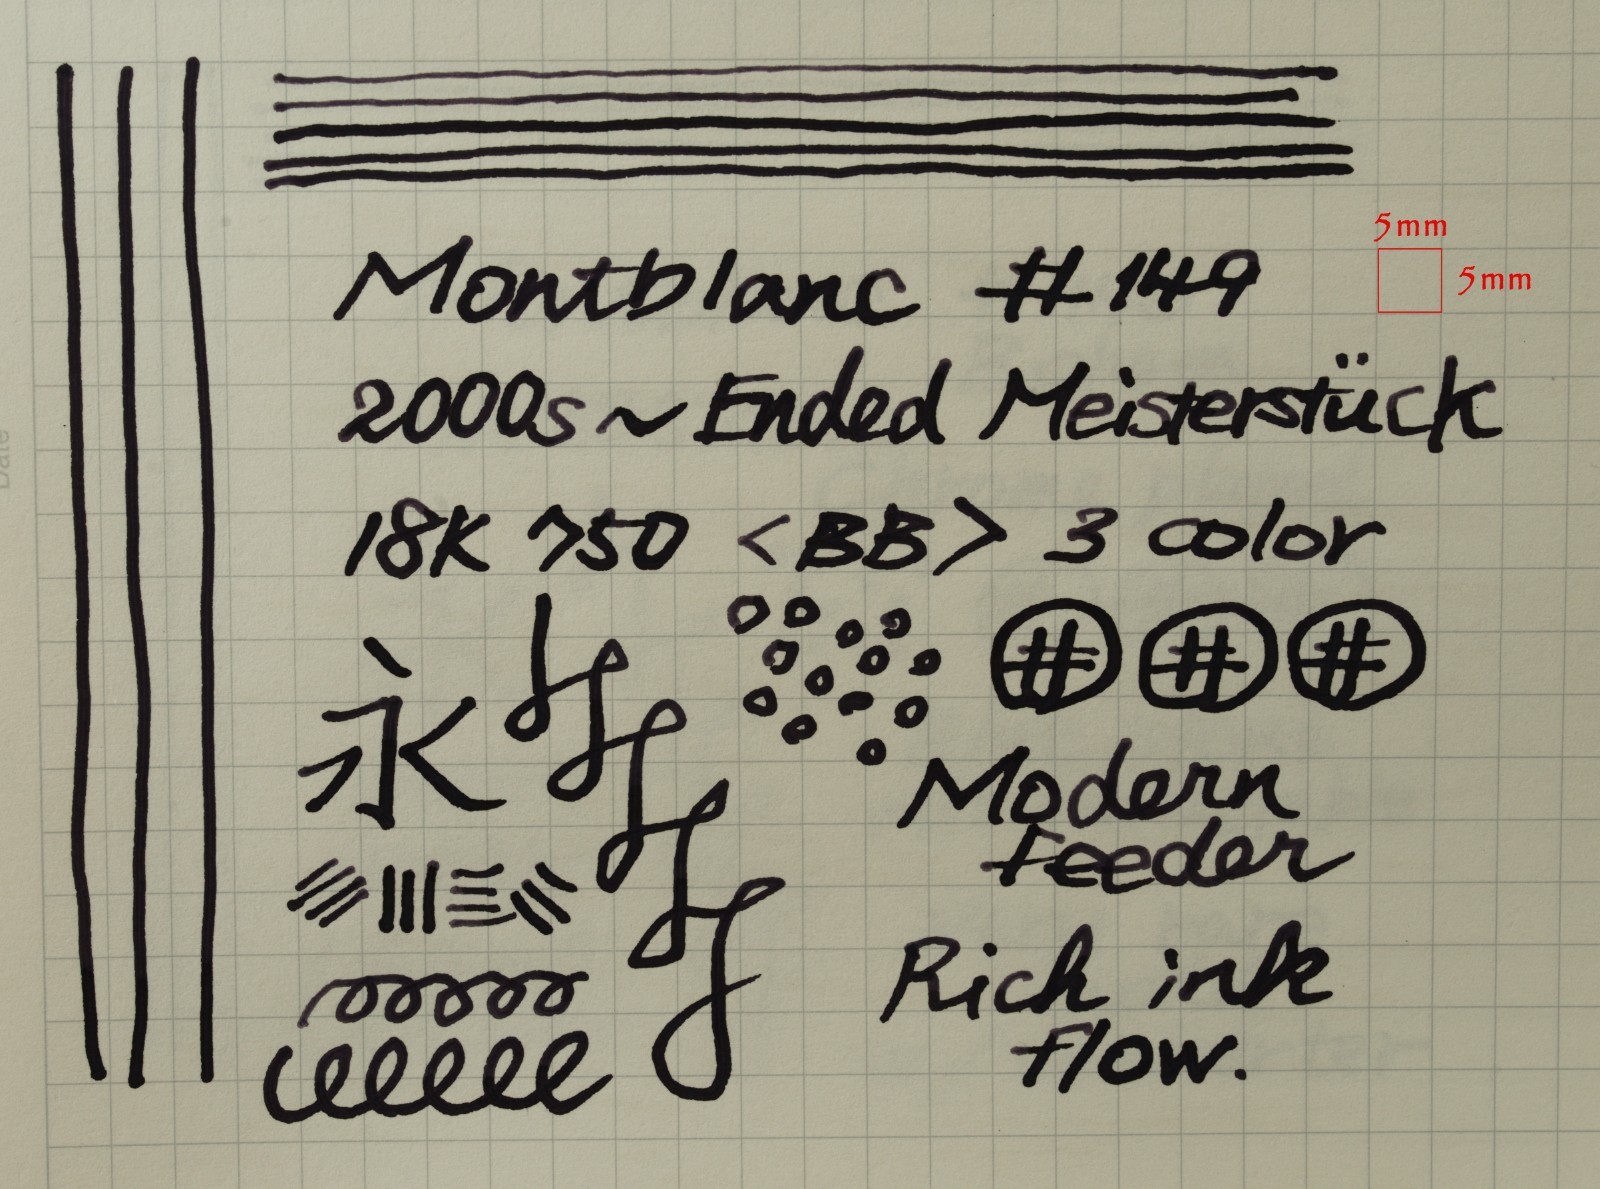 5mm
5mm
Montblanc #149
2000s ~ Ended Meisterstück
18K 750 <BB> 3 color
永
Modern
feeder
Rich ink
flow.
Date